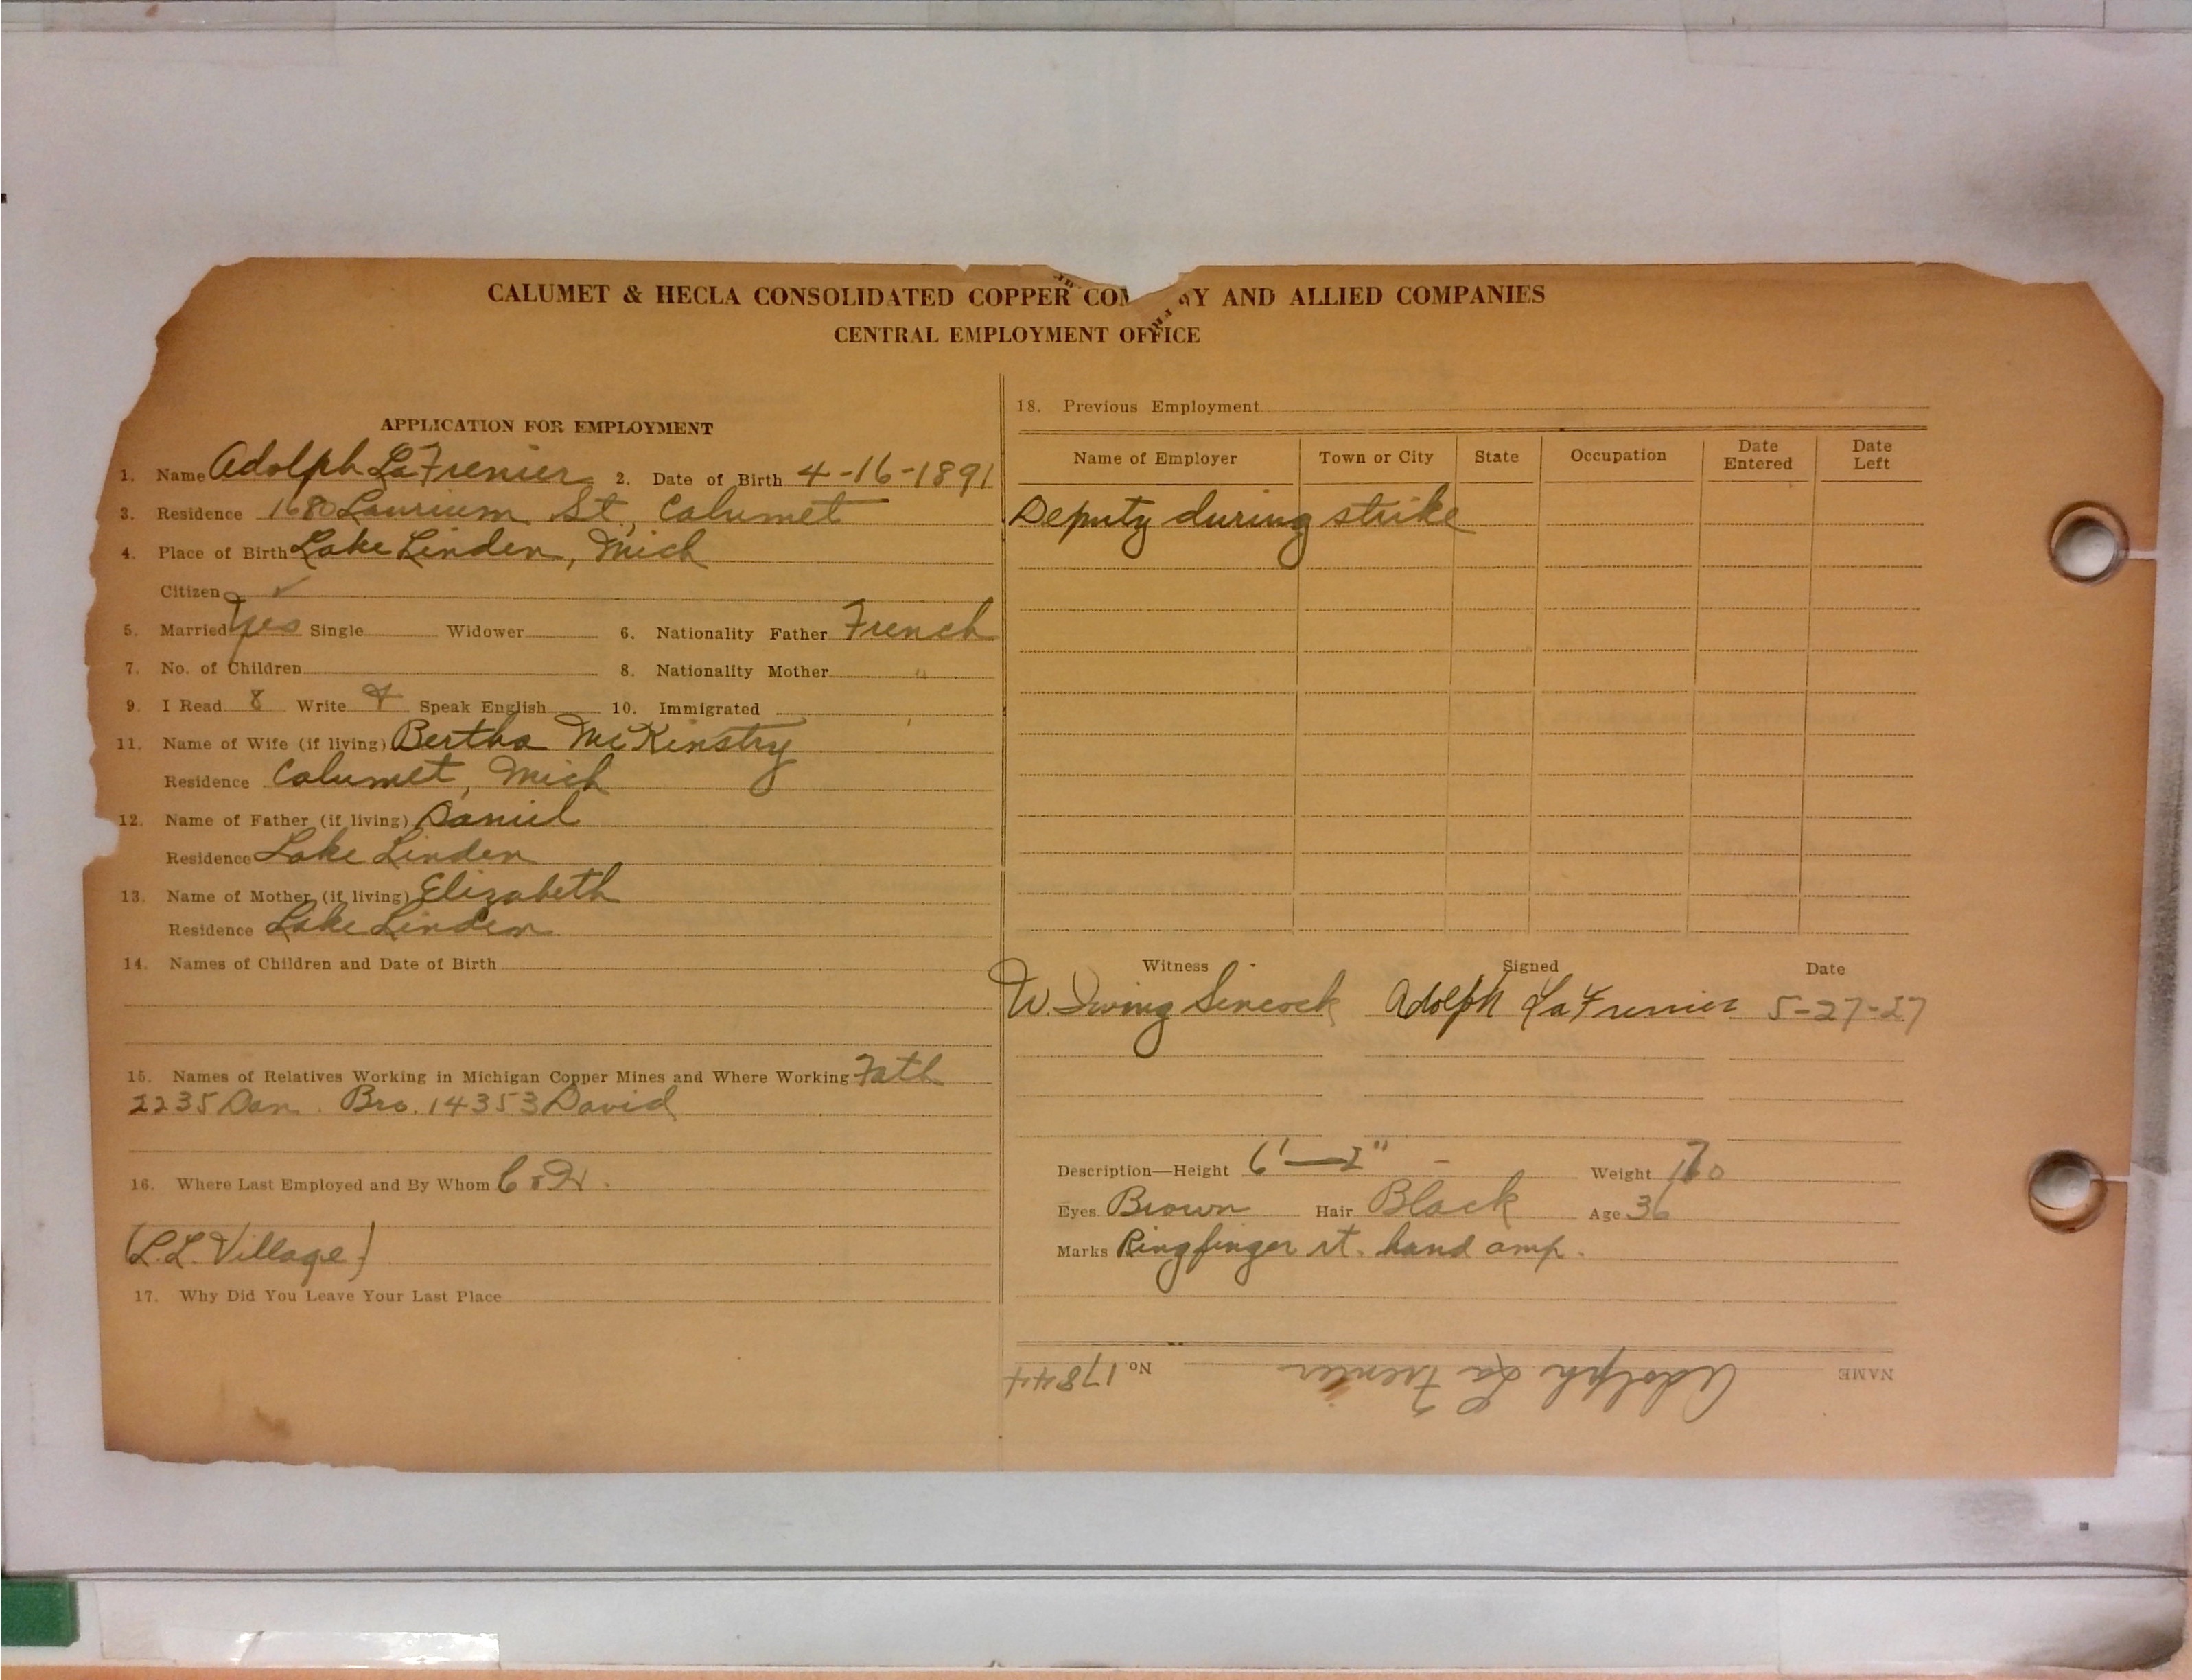 CALUMET & HECLA CONSOLIDATED COPPER COM AY AND ALLIED COMPANIES
CENTRAL EMPLOYMENT OFFICE
APPLICATION FOR EMPLOYMENT
1. Name Adolph LaFrenier 2. Date of Birth 4-16-1891
3. Residence 1680 Laurium St., Calumet
4. Place of Birth Lake Linden, Mich
Citizen ✓
5. Married Yes Single Widower 6. Nationality Father French
7. No. of Children 8. Nationality Mother "
9. I Read 8 Write Speak English 10. Immigrated
11. Name of Wife (if living) Bertha McKinstry
Residence Calumet, Mich
12. Name of Father (if living) Daniel
Residence Lake Linden
13. Name of Mother (if living) Elizabeth
Residence Lake Linden
14. Names of Children and Date of Birth
15. Names of Relatives Working in Michigan Copper Mines and Where Working Fath
2235 Dan. Bro. 14353 David
16. Where Last Employed and By Whom
(L.L. Village)
17. Why Did You Leave Your Last Place
18. Previous Employment
Name of Employer Town or City State Occupation Date Entered Date Left
Deputy during strike
Witness Signed Date
W. Irving Sincock Adolph LaFrenier 5-27-27
Description—Height 6'—2" Weight
Eyes Brown Hair Black Age 36
Marks Ring finger rt. hand amp.
NAME Adolph La Frenier No. 17844